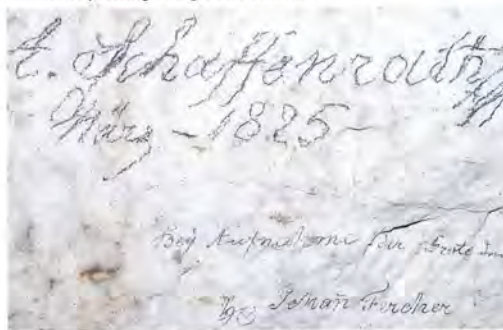 A. Schaffenrath
März - 1825 -
Bey Aufnahme der Grotte
Johañ Fercher